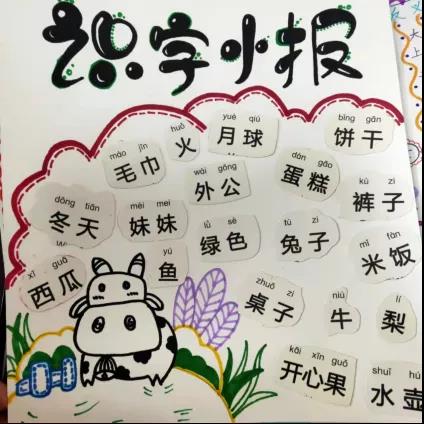 识字小报
máo jīn
毛巾
huǒ
火
yuè qiú
月球
bǐng gān
饼干
wài gōng
外公
dàn gāo
蛋糕
kù zi
裤子
dōng tiān
冬天
mèi mei
妹妹
lǜ sè
绿色
tù zi
兔子
mǐ fàn
米饭
xī guā
西瓜
yú
鱼
zhuō zi
桌子
niú
牛
lí
梨
kāi xīn guǒ
开心果
shuǐ hú
水壶